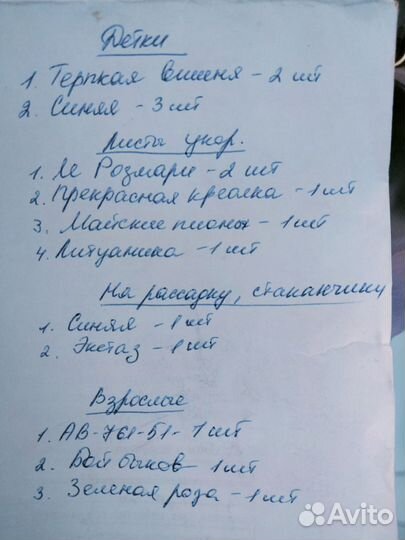 Детки
1. Терпкая вишня - 2 шт
2. Синяя - 3 шт
Листы укор.
1. Ле Розмари - 2 шт
2. Прекрасная креолка - 1 шт
3. Майские пионы - 1 шт
4. Литуаника - 1 шт
На рассадку, стаканчики
1. Синяя - 1 шт
2. Экстаз - 1 шт
Взрослые
1. АВ-761-51 - 1 шт
2. Бой быков - 1 шт
3. Зеленая роза - 1 шт
Avito